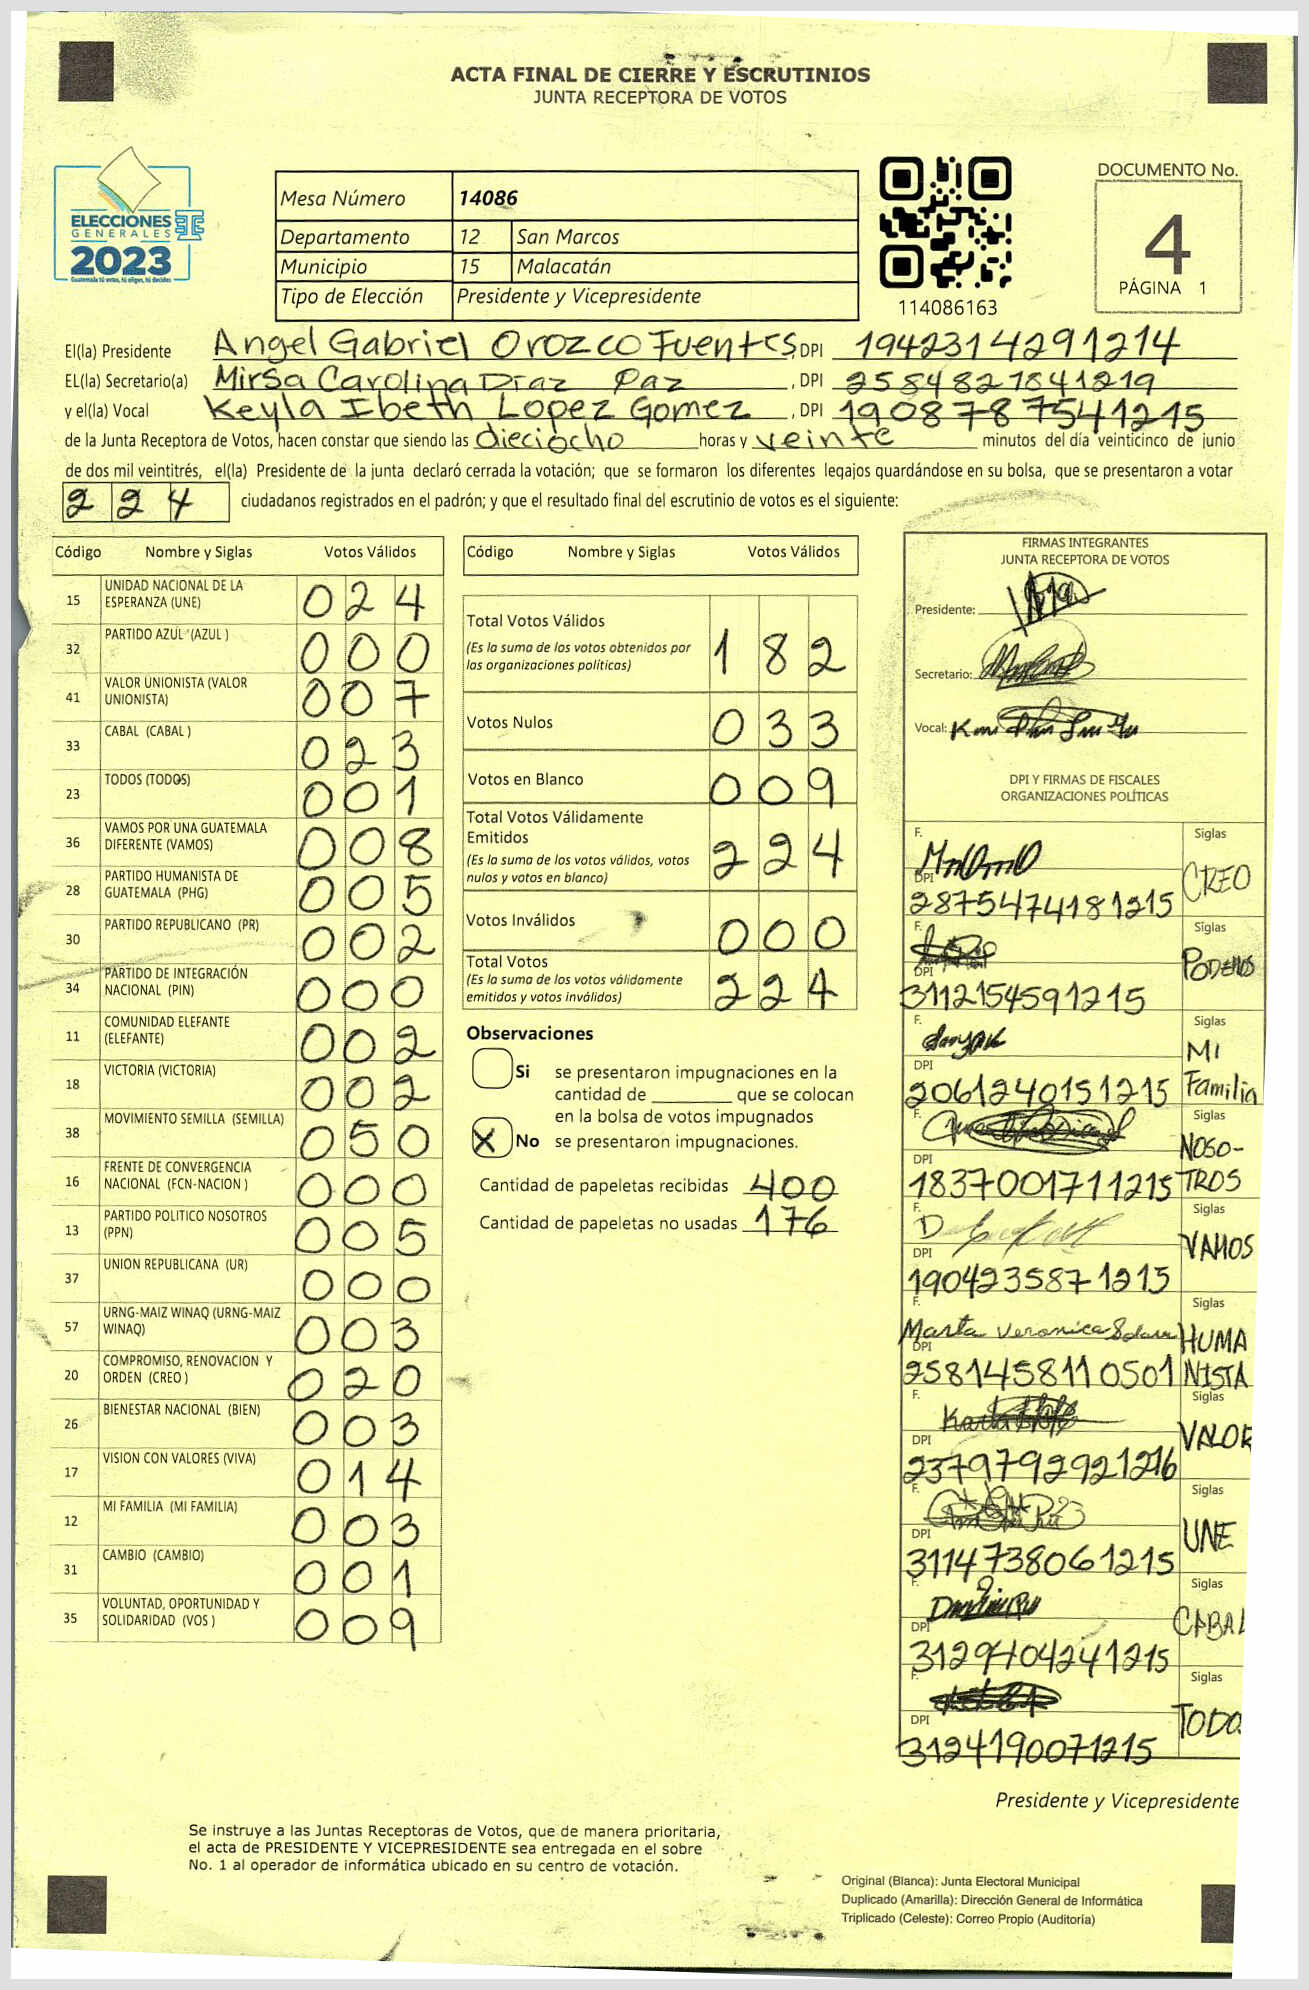 ACTA FINAL DE CIERRE Y ESCRUTINIOS
JUNTA RECEPTORA DE VOTOS
ELECCIONES
GENERALES
2023
Guatemala tú votas, tú eliges, tú decides
Mesa Número 14086
Departamento 12 San Marcos
Municipio 15 Malacatán
Tipo de Elección Presidente y Vicepresidente
114086163
DOCUMENTO No.
4
PÁGINA 1
El(la) Presidente Angel Gabriel Orozco Fuentes, DPI 1942314291214
EL(la) Secretario(a) Mirsa Carolina Diaz Paz, DPI 2584821841219
y el(la) Vocal Keyla Ibeth Lopez Gomez, DPI 1908787541215
de la Junta Receptora de Votos, hacen constar que siendo las dieciocho horas y veinte minutos del día veinticinco de junio
de dos mil veintitrés, el(la) Presidente de la junta declaró cerrada la votación; que se formaron los diferentes legajos guardándose en su bolsa, que se presentaron a votar
224 ciudadanos registrados en el padrón; y que el resultado final del escrutinio de votos es el siguiente:
Código Nombre y Siglas Votos Válidos
15 UNIDAD NACIONAL DE LA ESPERANZA (UNE) 024
32 PARTIDO AZUL (AZUL ) 000
41 VALOR UNIONISTA (VALOR UNIONISTA) 007
33 CABAL (CABAL ) 023
23 TODOS (TODOS) 001
36 VAMOS POR UNA GUATEMALA DIFERENTE (VAMOS) 008
28 PARTIDO HUMANISTA DE GUATEMALA (PHG) 005
30 PARTIDO REPUBLICANO (PR) 002
34 PARTIDO DE INTEGRACIÓN NACIONAL (PIN) 000
11 COMUNIDAD ELEFANTE (ELEFANTE) 002
18 VICTORIA (VICTORIA) 002
38 MOVIMIENTO SEMILLA (SEMILLA) 050
16 FRENTE DE CONVERGENCIA NACIONAL (FCN-NACION ) 000
13 PARTIDO POLITICO NOSOTROS (PPN) 005
37 UNION REPUBLICANA (UR) 000
57 URNG-MAIZ WINAQ (URNG-MAIZ WINAQ) 003
20 COMPROMISO, RENOVACION Y ORDEN (CREO ) 020
26 BIENESTAR NACIONAL (BIEN) 003
17 VISION CON VALORES (VIVA) 014
12 MI FAMILIA (MI FAMILIA) 003
31 CAMBIO (CAMBIO) 001
35 VOLUNTAD, OPORTUNIDAD Y SOLIDARIDAD (VOS ) 009
Código Nombre y Siglas Votos Válidos
Total Votos Válidos 182
(Es la suma de los votos obtenidos por
las organizaciones políticas)
Votos Nulos 033
Votos en Blanco 009
Total Votos Válidamente
Emitidos 224
(Es la suma de los votos válidos, votos
nulos y votos en blanco)
Votos Inválidos 000
Total Votos 224
(Es la suma de los votos válidamente
emitidos y votos inválidos)
Observaciones
Si se presentaron impugnaciones en la
cantidad de ________ que se colocan
en la bolsa de votos impugnados
X No se presentaron impugnaciones.
Cantidad de papeletas recibidas 400
Cantidad de papeletas no usadas 176
FIRMAS INTEGRANTES
JUNTA RECEPTORA DE VOTOS
Presidente:
Secretario:
Vocal:
DPI Y FIRMAS DE FISCALES
ORGANIZACIONES POLÍTICAS
F. Siglas
DPI CREO
2875474181215
F. Siglas
DPI PODEMOS
3112154591215
F. Siglas
DPI MI Familia
2061240151215
F. Siglas
DPI NOSO-
1837001711215 TROS
F. Siglas
DPI VAMOS
1904235871215
F. Marta Veronica Siglas
DPI HUMA
2581458110501 NISTA
F. Siglas
DPI VALOR
2379792921216
F. Siglas
DPI UNE
3114738061215
F. Siglas
DPI CABAL
3129404241215
F. Siglas
DPI TODO
3124190071215
Presidente y Vicepresidente
Se instruye a las Juntas Receptoras de Votos, que de manera prioritaria,
el acta de PRESIDENTE Y VICEPRESIDENTE sea entregada en el sobre
No. 1 al operador de informática ubicado en su centro de votación.
Original (Blanca): Junta Electoral Municipal
Duplicado (Amarilla): Dirección General de Informática
Triplicado (Celeste): Correo Propio (Auditoría)